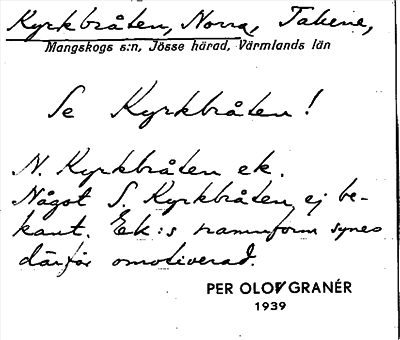 Kyrkbråten, Norra, Takene,
Mangskogs s:n, Jösse härad, Värmlands län
Se Kyrkbråten!
N. Kyrkbråten ek.
Något S. Kyrkbråten ej be-
kant. Ek:s namnform synes
därför omotiverad.
PER OLOF GRANÉR
1939